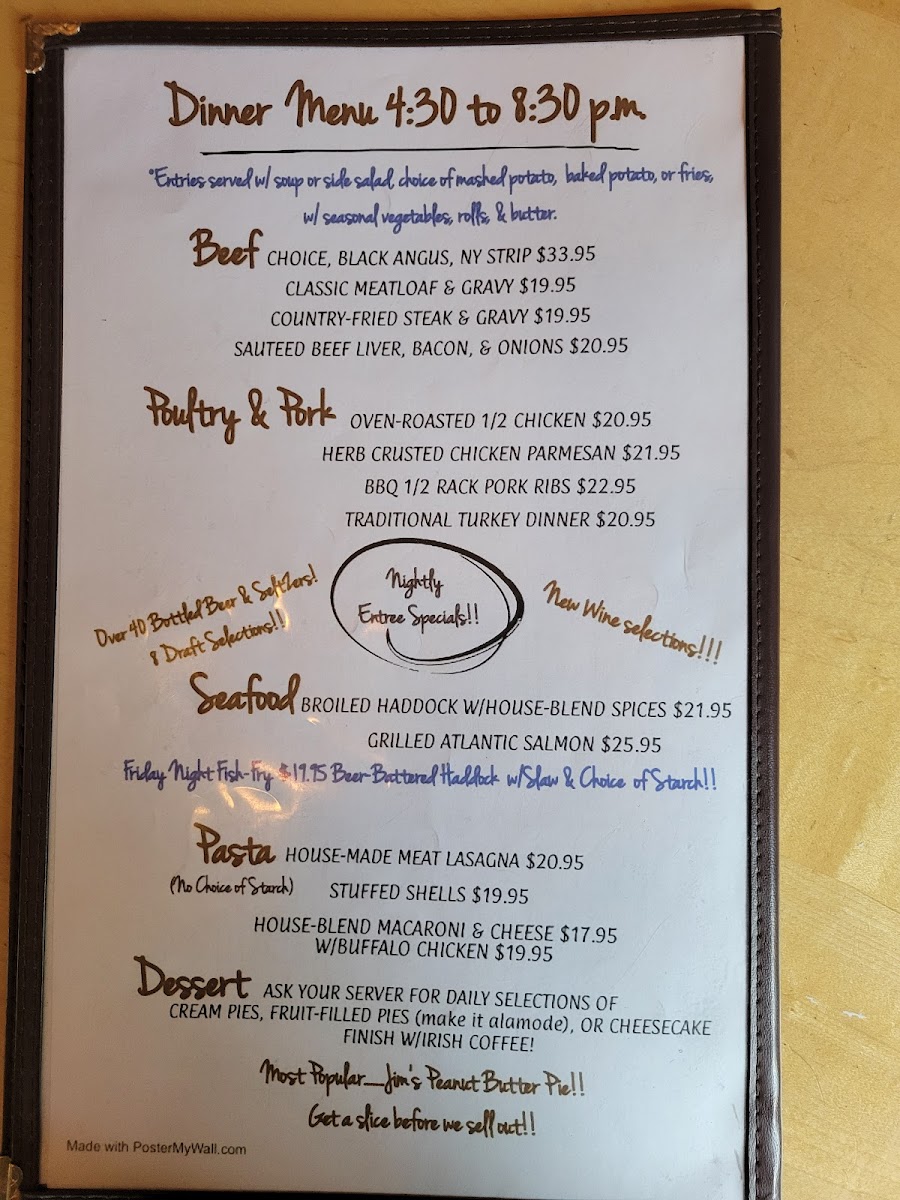 Dinner Menu 4:30 to 8:30 p.m.
*Entries served w/ soup or side salad, choice of mashed potato, baked potato, or fries,
w/ seasonal vegetables, rolls, & butter.
Beef CHOICE, BLACK ANGUS, NY STRIP $33.95
CLASSIC MEATLOAF & GRAVY $19.95
COUNTRY-FRIED STEAK & GRAVY $19.95
SAUTEED BEEF LIVER, BACON, & ONIONS $20.95
Poultry & Pork OVEN-ROASTED 1/2 CHICKEN $20.95
HERB CRUSTED CHICKEN PARMESAN $21.95
BBQ 1/2 RACK PORK RIBS $22.95
TRADITIONAL TURKEY DINNER $20.95
Over 40 Bottled Beer & Seltzers!
8 Draft Selections!!
Nightly
Entree Specials!!
New Wine selections!!!
Seafood BROILED HADDOCK W/HOUSE-BLEND SPICES $21.95
GRILLED ATLANTIC SALMON $25.95
Friday Night Fish-Fry $19.95 Beer-Battered Haddock w/Slaw & Choice of Starch!!
Pasta HOUSE-MADE MEAT LASAGNA $20.95
(No Choice of Starch) STUFFED SHELLS $19.95
HOUSE-BLEND MACARONI & CHEESE $17.95
W/BUFFALO CHICKEN $19.95
Dessert ASK YOUR SERVER FOR DAILY SELECTIONS OF
CREAM PIES, FRUIT-FILLED PIES (make it alamode), OR CHEESECAKE
FINISH W/IRISH COFFEE!
Most Popular__Jim's Peanut Butter Pie!!
Get a slice before we sell out!!
Made with PosterMyWall.com